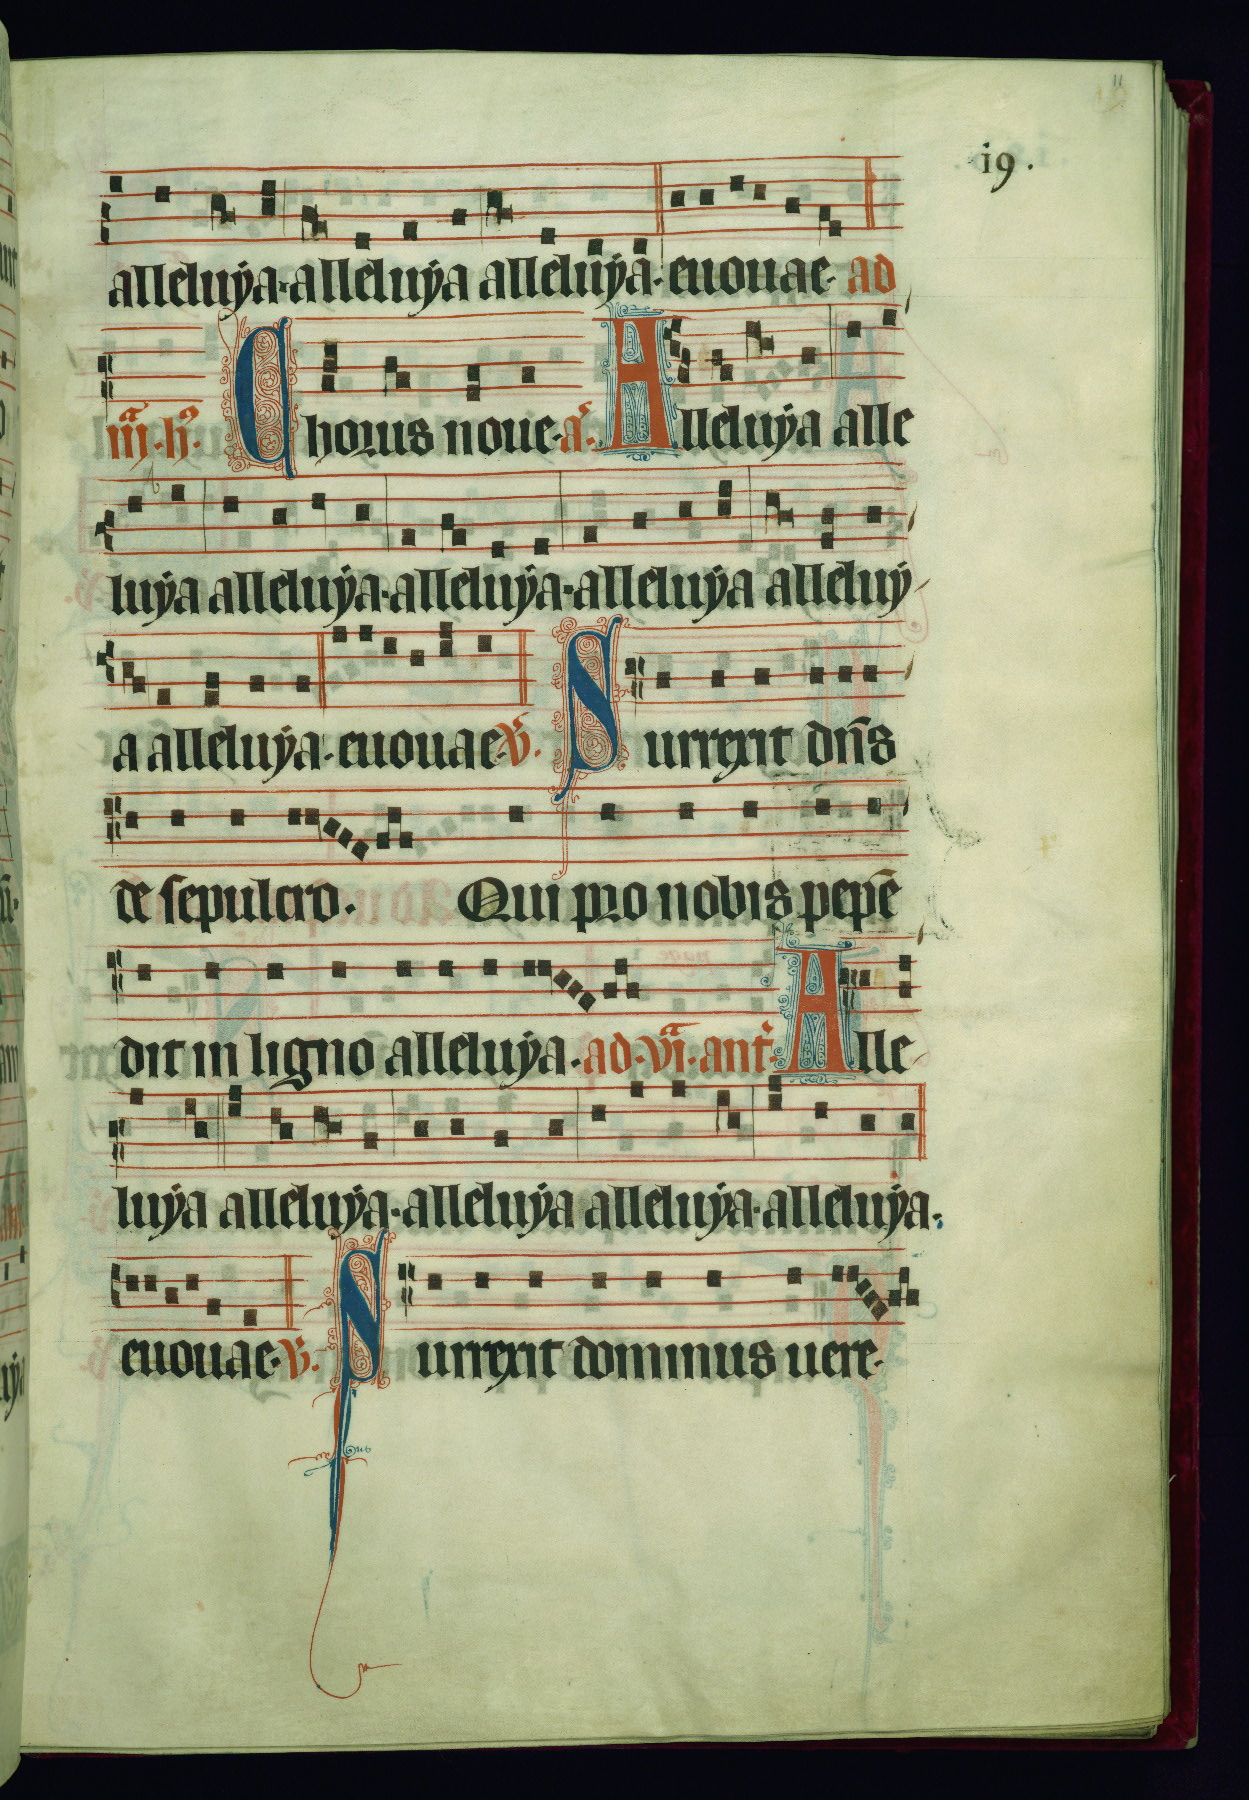 19.
alleluya·alleluya alleluya·euouae· ad
iii·h. Chorus noue·a. Alleluya alle
luya alleluya·alleluya·alleluya alleluy
a alleluya·euouae·V. Surrexit dn̄s
de sepulcro. Qui pro nobis pepē
dit in ligno alleluya·ad·vi·ant. Alle
luya alleluya·alleluya alleluya·alleluya.
euouae·V. Surrexit dominus uere·